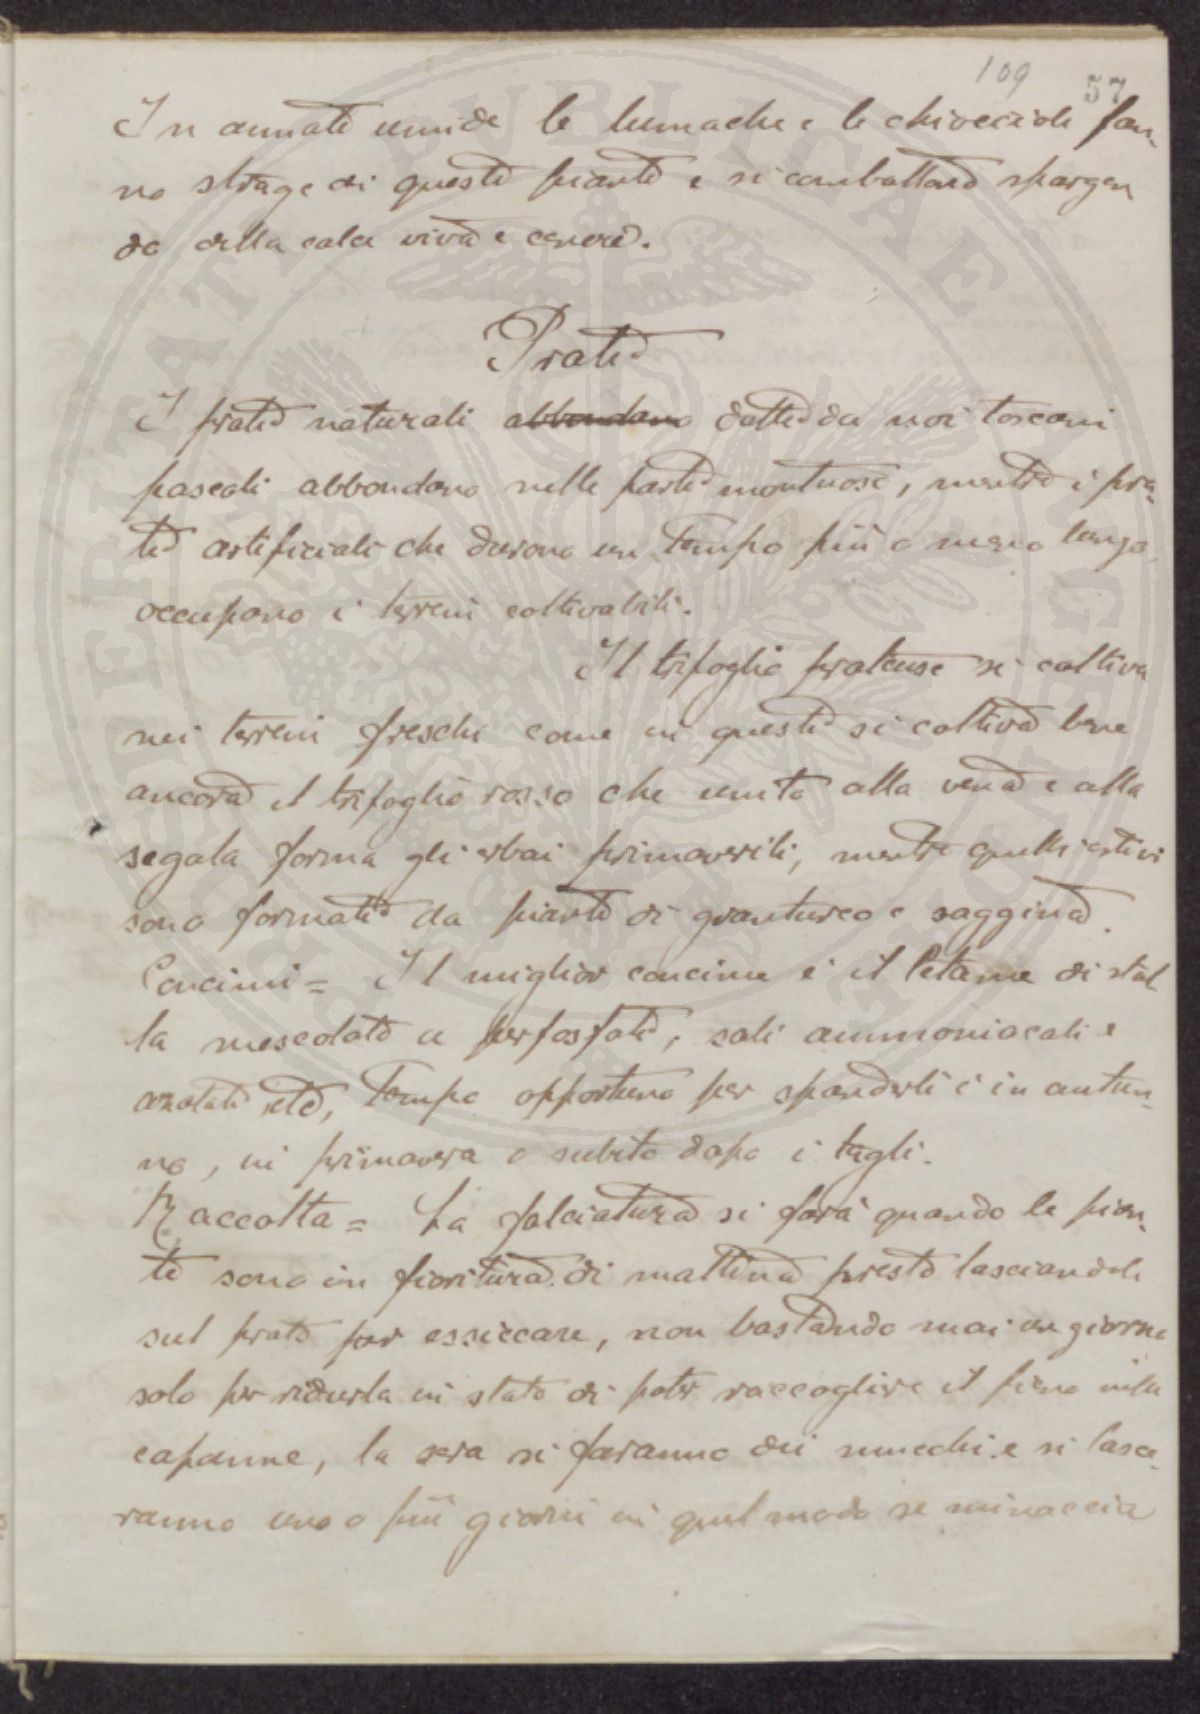 109 57
In annate umide le lumache e le chiocciole fan-
no strage di queste piante e si combattono spargen
do della calce viva e cenere.
Prati
I prati naturali abbondano detti da noi toscani
pascoli abbondano nelle parti montuose, mentre i pra-
ti artificiali che durano un tempo più o meno lungo
occupano i terreni coltivabili.
Il trifoglio pratense si coltiva
nei terreni freschi come in questi si coltiva bene
ancora il trifoglio rosso che unito alla vena e alla
segala forma gli erbai primaverili, mentre quelli estivi
sono formati da piante di granturco e saggina.
Concimi = Il miglior concime è il letame di stal
la mescolato a perfosfati, sali ammoniacali e
azotati etc, Tempo opportuno per spanderli è in autun-
no, in primavera o subito dopo i tagli.
Raccolta = La falciatura si farà quando le pian-
te sono in fioritura di mattina presto lasciandole
sul prato per essiccare, non bastando mai un giorno
solo per ridurla in stato di poter raccogliere il fieno nelle
capanne, la sera si faranno dei mucchi e si lasce-
ranno uno o più giorni in quel modo se minaccia
PROSPERITATI PUBLICAE AUGENDAE